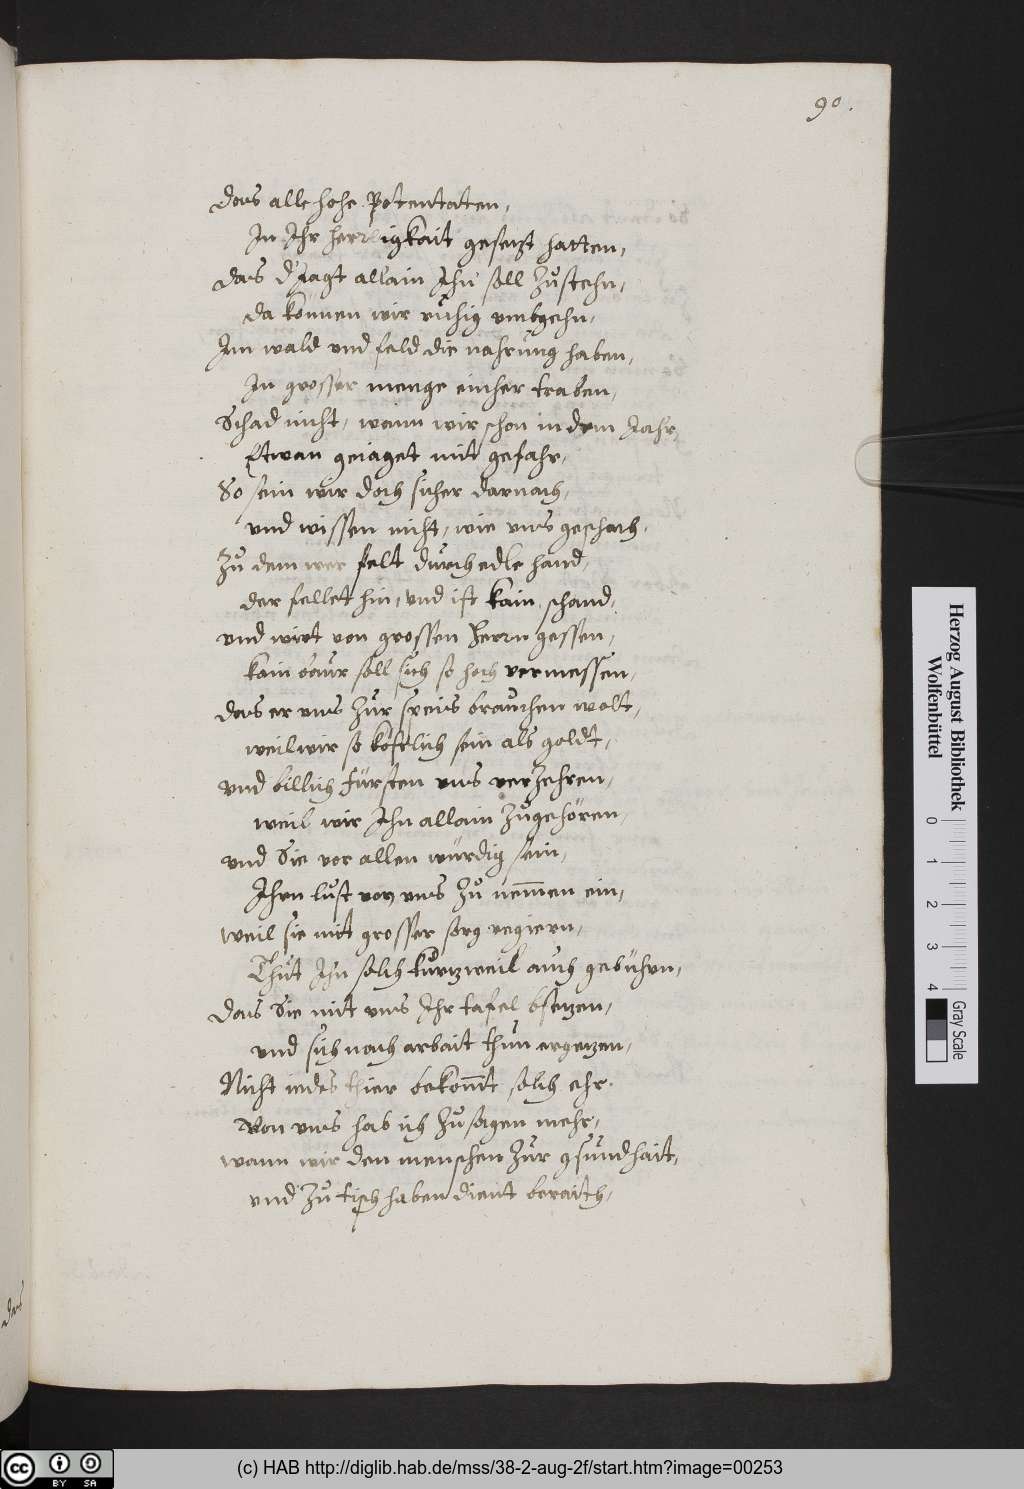 90.
Das alle hohe Potentaten,
In Ihr herrligkait gesetzt hatten,
das d'Jagt allain Ihn soll Zustehn,
da können wir ruhig umbgehn,
Im wald und feld die nahrung haben,
In grosser menge einher traben,
Schad nicht, wann wir schon in dem Jahr,
Etwan geiaget mit gefahr,
So sein wir doch sicher darnach,
und wissen nicht, wie uns geschach.
Zu dem wer felt durch edle hand,
der fellet hin, und ist kain schand,
und wirt von grossen Herrn gessen,
kain baur soll sich so hoch vermessen,
das er uns Zur speis brauchen wolt,
weil wir so köstlich sein als goldt,
und billich fürsten uns verZehren,
weil wir Ihn allain Zugehören,
und Sie vor allen würdig sein,
Ihrn lust von uns Zu nem̅en ein,
weil sie mit grosser sorg regiern,
Thut Ihn solch kurtzweil auch gebührn,
Das Sie mit uns Ihr tafel bsetzen,
und sich nach arbait thun ergetzen,
Nicht iedes thier bekom̅t solch ehr.
Von uns hab ich Zu sagen mehr,
wann wir den menschen Zur gsundhait,
und Zu tisch haben dient beraith,
das
Herzog August Bibliothek
Wolfenbüttel
0 1 2 3 4
Gray Scale
cc BY SA
(c) HAB http://diglib.hab.de/mss/38-2-aug-2f/start.htm?image=00253